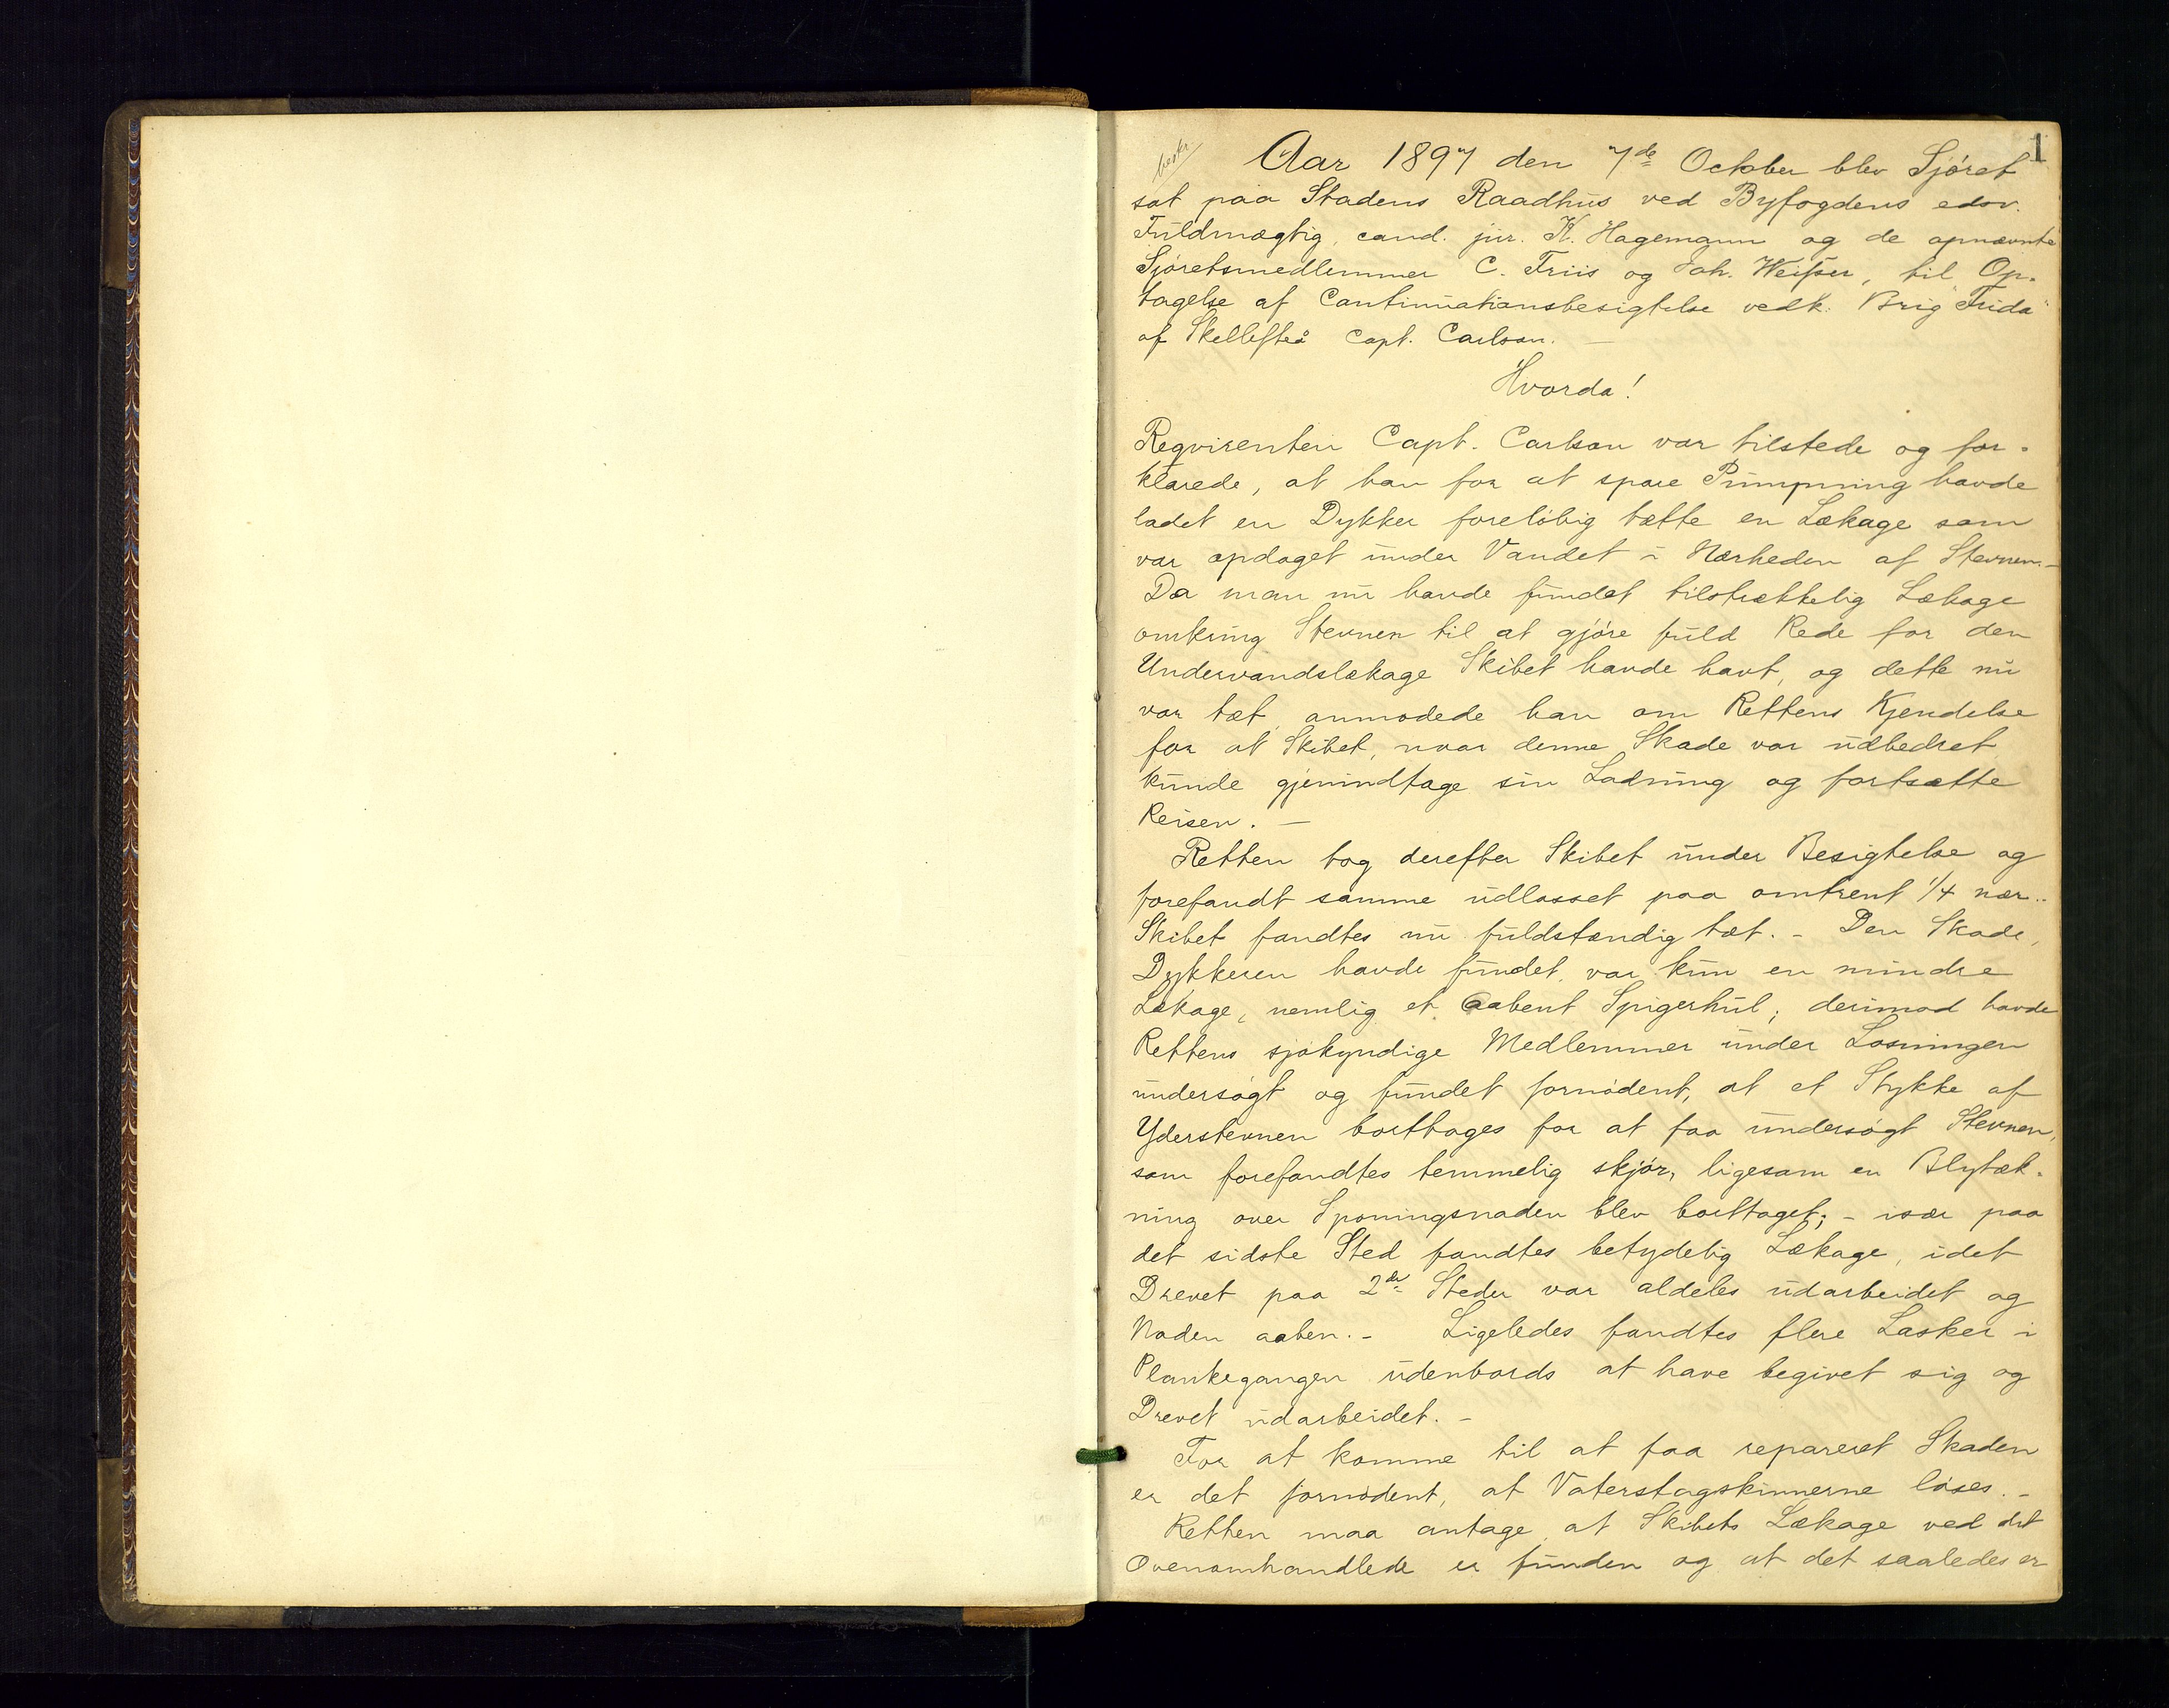 1
beskr
Aar 1897 den 7de October blev Sjöret
sat paa Stadens Raadhus ved Byfogdens edsv.
Fuldmægtig, cand. jur. K. Hagemann og de opnævnte
Sjöretsmedlemmer C. Friis og Joh. Weisser, til Op-
tagelse af Continuationsbesigtelse vedk. Brig "Frida"
af Skellefteå Capt. Carlson. —
Hvorda!
Reqvirenten Capt. Carlson var tilstede og for-
klarede, at han for at spare Pumpning havde
ladet en Dykker foreløbig tætte en Lækage som
var opdaget under Vandet i Nærheden af Stevnen. -
Da man nu havde fundet tilstrækkelig Lækage
omkring Stevnen til at gjöre fuld Rede for den
Undervandslækage Skibet havde havt, og dette nu
var tæt, anmodede han om Rettens Kjendelse
for at Skibet, naar denne Skade var udbedret
kunde gjenindtage sin Ladning og fortsætte
Reisen. —
Retten tog derefter Skibet under Besigtelse og
forefandt samme udlosset paa omtrent 1/4 nær. -
Skibet fandtes nu fuldstændig tæt. - Den Skade,
Dykkeren havde fundet, var kun en mindre
Lækage, nemlig et aabent Spigerhul; derimod havde
Rettens sjökyndige Medlemmer under Losningen
undersögt og fundet fornödent, at et Stykke af
Yderstevnen borttoges for at faa undersögt Stevnen,
som forefandtes temmelig skjör, ligesom en Blytæk-
ning over Sponingsnaden blev borttaget; - især paa
det sidste Sted fandtes betydelig Lækage, idet
Drevet paa 2de Steder var aldeles udarbeidet og
Naden aaben. - Ligeledes fandtes flere Lasker i
Plankegangen udenbords at have begivet sig og
Drevet udarbeidet. -
For at komme til at faa repareret Skaden
er det fornödent, at Vaterstagskinnerne löses. -
Retten maa antage, at Skibets Lækage ved det
Ovenomhandlede er funden og at det saaledes er